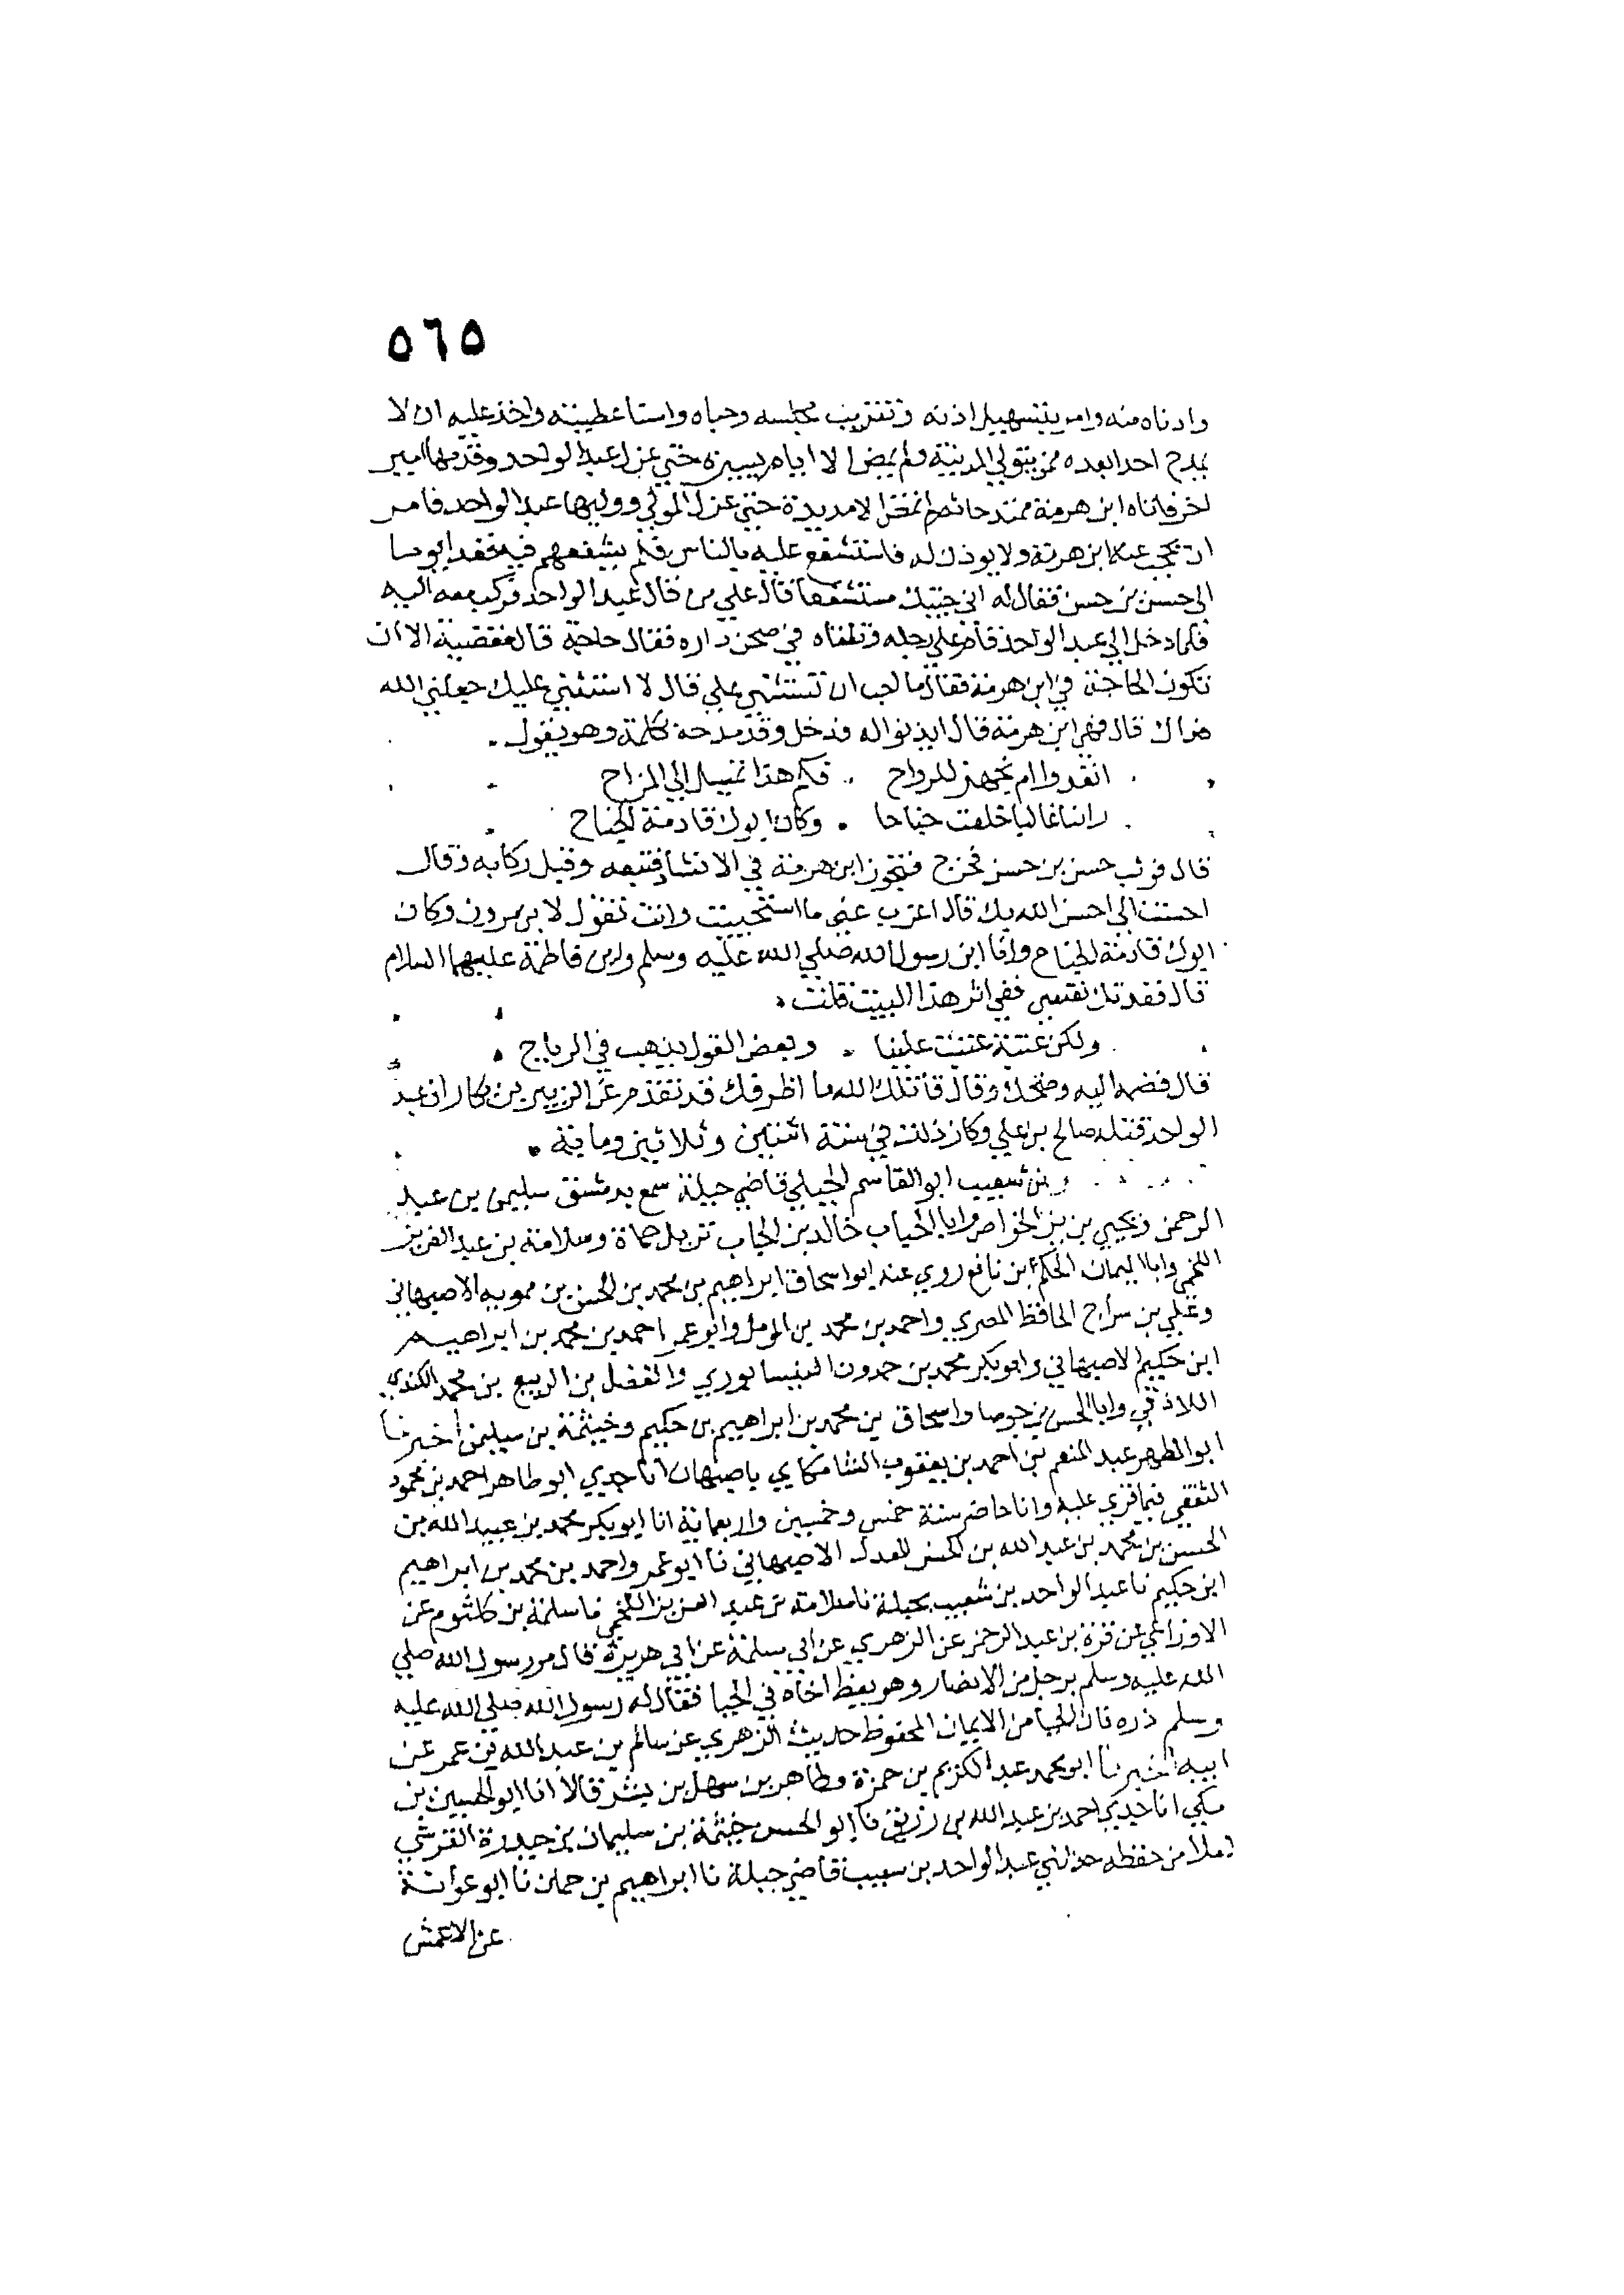 ٥٦٥
وادناه منه وامر بتسهيل اذنه وتقريب مجلسه وحباه واسنا عطيته واخذ عليه ان لا
يمدح احدا بعده ممن يتولى المدينة ولم يمض الا ايام يسيرة حتى عزل عبد الواحد وقدمها امير
اخر فاتاه ابن هرمة ممتدحا ثم لم تمض الا مديدة حتى عزل المولي ووليها عبد الواحد فامر
ان يحجب عنه ابن هرمة ولا يوذن له فاستشفع عليه بالناس فلم يشفعهم فيه فغدا يوما
الى حسن بن حسن فقال له اني جيتك مستشفعا قال علي من قال عبد الواحد فركب معه اليه
فلما دخل الى عبد الواحد قام على رجله وتلقاه في صحن داره فقال حاجة قال مقضية الا ان
تكون الحاجة في ابن هرمة فقال ما احب ان تستثني علي قال لا استثني عليك جعلني الله
فداك قال فهي ابن هرمة قال ايذنوا له فدخل وقد مدحه بكلمة وهو يقول
فكم هذا تميل الى المزاح
راينا غالبا خلقت جناحا وكان ابوك قادمة الجناح
قال فوثب حسن بن حسن فخرج فتجوز ابن هرمة في الانشاد فتبعه وقبل ركابه وقال
احسنت الى احسن الله بك قال اعزب عني ما استحييت وانت تقول لابن مروان وكان
ابوك قادمة الجناح وانا ابن رسول الله صلى الله عليه وسلم وابن فاطمة عليهما السلام
قال فقدتك نفسي ففي اثر هذا البيت قلت
ولكن عتبة عتبت علينا وبعض القول يذهب في الرياح
قال فضمه اليه وضحك وقال قاتلك الله ما اظرفك قد تقدم عن الزبير بن بكار ان عبد
الواحد قتله صالح بن علي وكان ذلك في سنة اثنتين وثلاثين ومائة
بن شعيب ابو القاسم الجبلي قاضي جبلة سمع بدمشق سليمن بن عبد
الرحمن ويحيى بن يزيد الخواص وابا الخباب خالد بن الحباب نزيل حماة وسلامة بن عبد العزيز
اللخمي وابا اليمان الحكم بن نافع روي عنه ابو اسحاق ابراهيم بن محمد بن الحسن بن مموية الاصبهاني
وعلي بن سراج الحافظ المصري واحمد بن محمد بن المومل وابو عمر احمد بن محمد بن ابراهيم
ابن حكيم الاصبهاني وابو بكر محمد بن حمدون النيسابوري والفضل بن الربيع بن محمد الكندي
اللاذقي وابا الحسن بن جوصا واسحاق بن محمد بن ابراهيم بن حكيم وخيثمة بن سليمن اخبرنا
ابو المطهر عبد المنعم بن احمد بن يعقوب الشامكاي باصبهان انا جدي ابو طاهر احمد بن محمود
الثقفي فيما قري عليه وانا حاضر سنة خمس وخمسين واربعمائة انا ابو بكر محمد بن عبيد الله بن
الحسن بن محمد بن عبد الله بن الحسن المعدل الاصبهاني نا ابو عمر واحمد بن محمد بن ابراهيم
ابن حكيم نا عبد الواحد بن شعيب بجبلة نا سلامة بن عبد العزيز اللخمي نا سلمة بن كلثوم عن
الاوزاعي عن قرة بن عبد الرحمن عن الزهري عن ابي سلمة عن ابي هريرة قال مر رسول الله صلى
الله عليه وسلم برجل من الانصار وهو يعظ اخاه في الحيا فقال له رسول الله صلى الله عليه
وسلم ذره فان الحيا من الايمان المحفوظ حديث الزهري عن سالم بن عبد الله بن عمر عن
ابيه اخبرنا ابو محمد عبد الكريم بن حمزة وطاهر بن سهل بن بشر قالا انا ابو الحسين بن
مكي انا جدي احمد بن عبد الله بن رزيق نا ابو الحسن خيثمة بن سليمان بن حيدرة القرشي
املا من حفظه حدثني عبد الواحد بن شعيب قاضي جبلة نا ابراهيم بن نا ابو عوانة
عن الاعمش